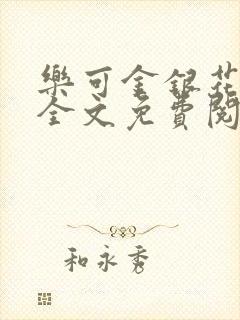 樂可金銀花
全文免費閱
和永秀